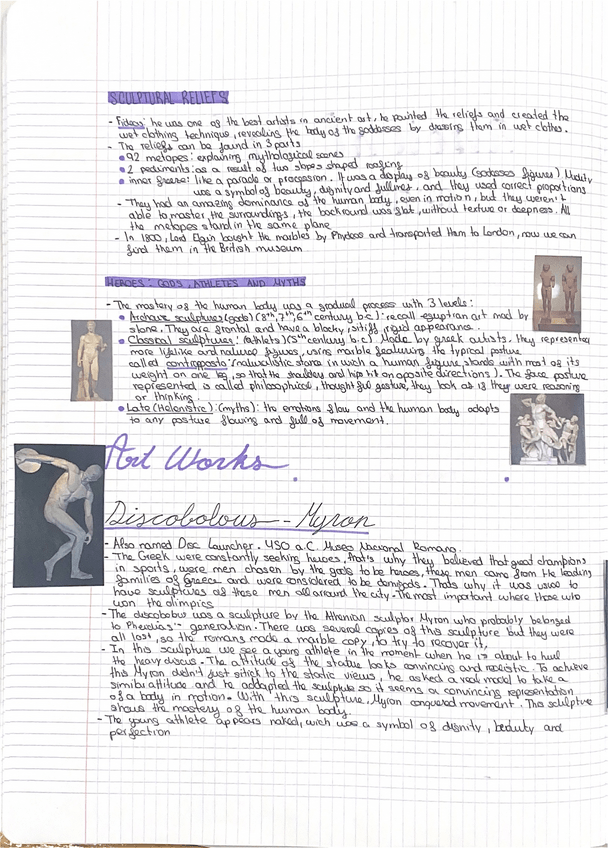 SCULPTURAL RELIEFS
- Fideas: he was one of the best artists in ancient art, he painted the reliefs and created the
wet clothing technique, revealing the body of the goddesses by dressing them in wet clothes.
- The reliefs can be found in 3 parts
• 92 metopes: explaining mythological scenes
• 2 pediments: as a result of two slopes shaped roofing
• inner freeze: like a parade or procession. It was a display of beauty (godesses figures). Nudity
was a symbol of beauty, dignity and fullness, and they used correct proportions
- They had an amazing dominance of the human body, even in motion, but they weren't
able to master, the surroundings, the backround was flat, without texture or deepness. All
the metopes stand in the same plane
- In 1800, Lord Elgin bought the marbles by Phydeas and transported them to London, now we can
find them in the British museum
HEROES: GODS, ATHLETES AND MYTHS
- The mastery of the human body was a gradual process with 3 levels:
• Archaic sculptures (gods) (8th, 7th, 6th century b.c): recall egyptian art mad by
stone. They are frontal and have a blocky, stiff, rigid appearance.
• Classical sculptures: (athlets) (5th century b.c). Made by greek artists. they represented
more lifelike and natural figures, using marble featuring the typical posture
called contrapposto (naturalistic stance in wich a human figure stands with most of its
weight on one leg, so that the shoulders and hips tilt on opposite directions). The face posture
represented is called philosophical, thoughtful gesture, they look as if they were reasoning
or thinking.
• Late (Helenistic): (myths): the emotions flow and the human body adapts
to any posture flowing and full of movement.
Art Works
Discobolous -- Myron
- Also named Disc Launcher. 450 a.C. Museo Nacional Romano.
- The Greek were constantly seeking heroes, that's why they believed that great champions
in sports, were men chosen by the gods to be heroes, these men came from the leading
families of Greece and were considered to be demigods. Thats why it was usual to
have sculptures of these men all around the city. The most important where those who
won the olimpics
- The discobolus was a sculpture by the Athenian sculptor Myron who probably belonged
to Phereclus's generation. There was several copies of this sculpture but they were
all lost, so the romans made a marble copy, to try to recover it.
- In this sculpture we see a young athlete in the moment when he is about to hurl
the heavy discus. The attitude of the statue looks convincing and realistic. To achieve
this Myron didn't just stick to the static views, he asked a real model to take a
similar attitude and he adapted the sculpture so it seems a convincing representation
of a body in motion. With this sculpture, Myron conquered movement. This sculpture
shows the mastery of the human body.
- The young athlete appears naked, wich was a symbol of dignity, beauty and
perfection